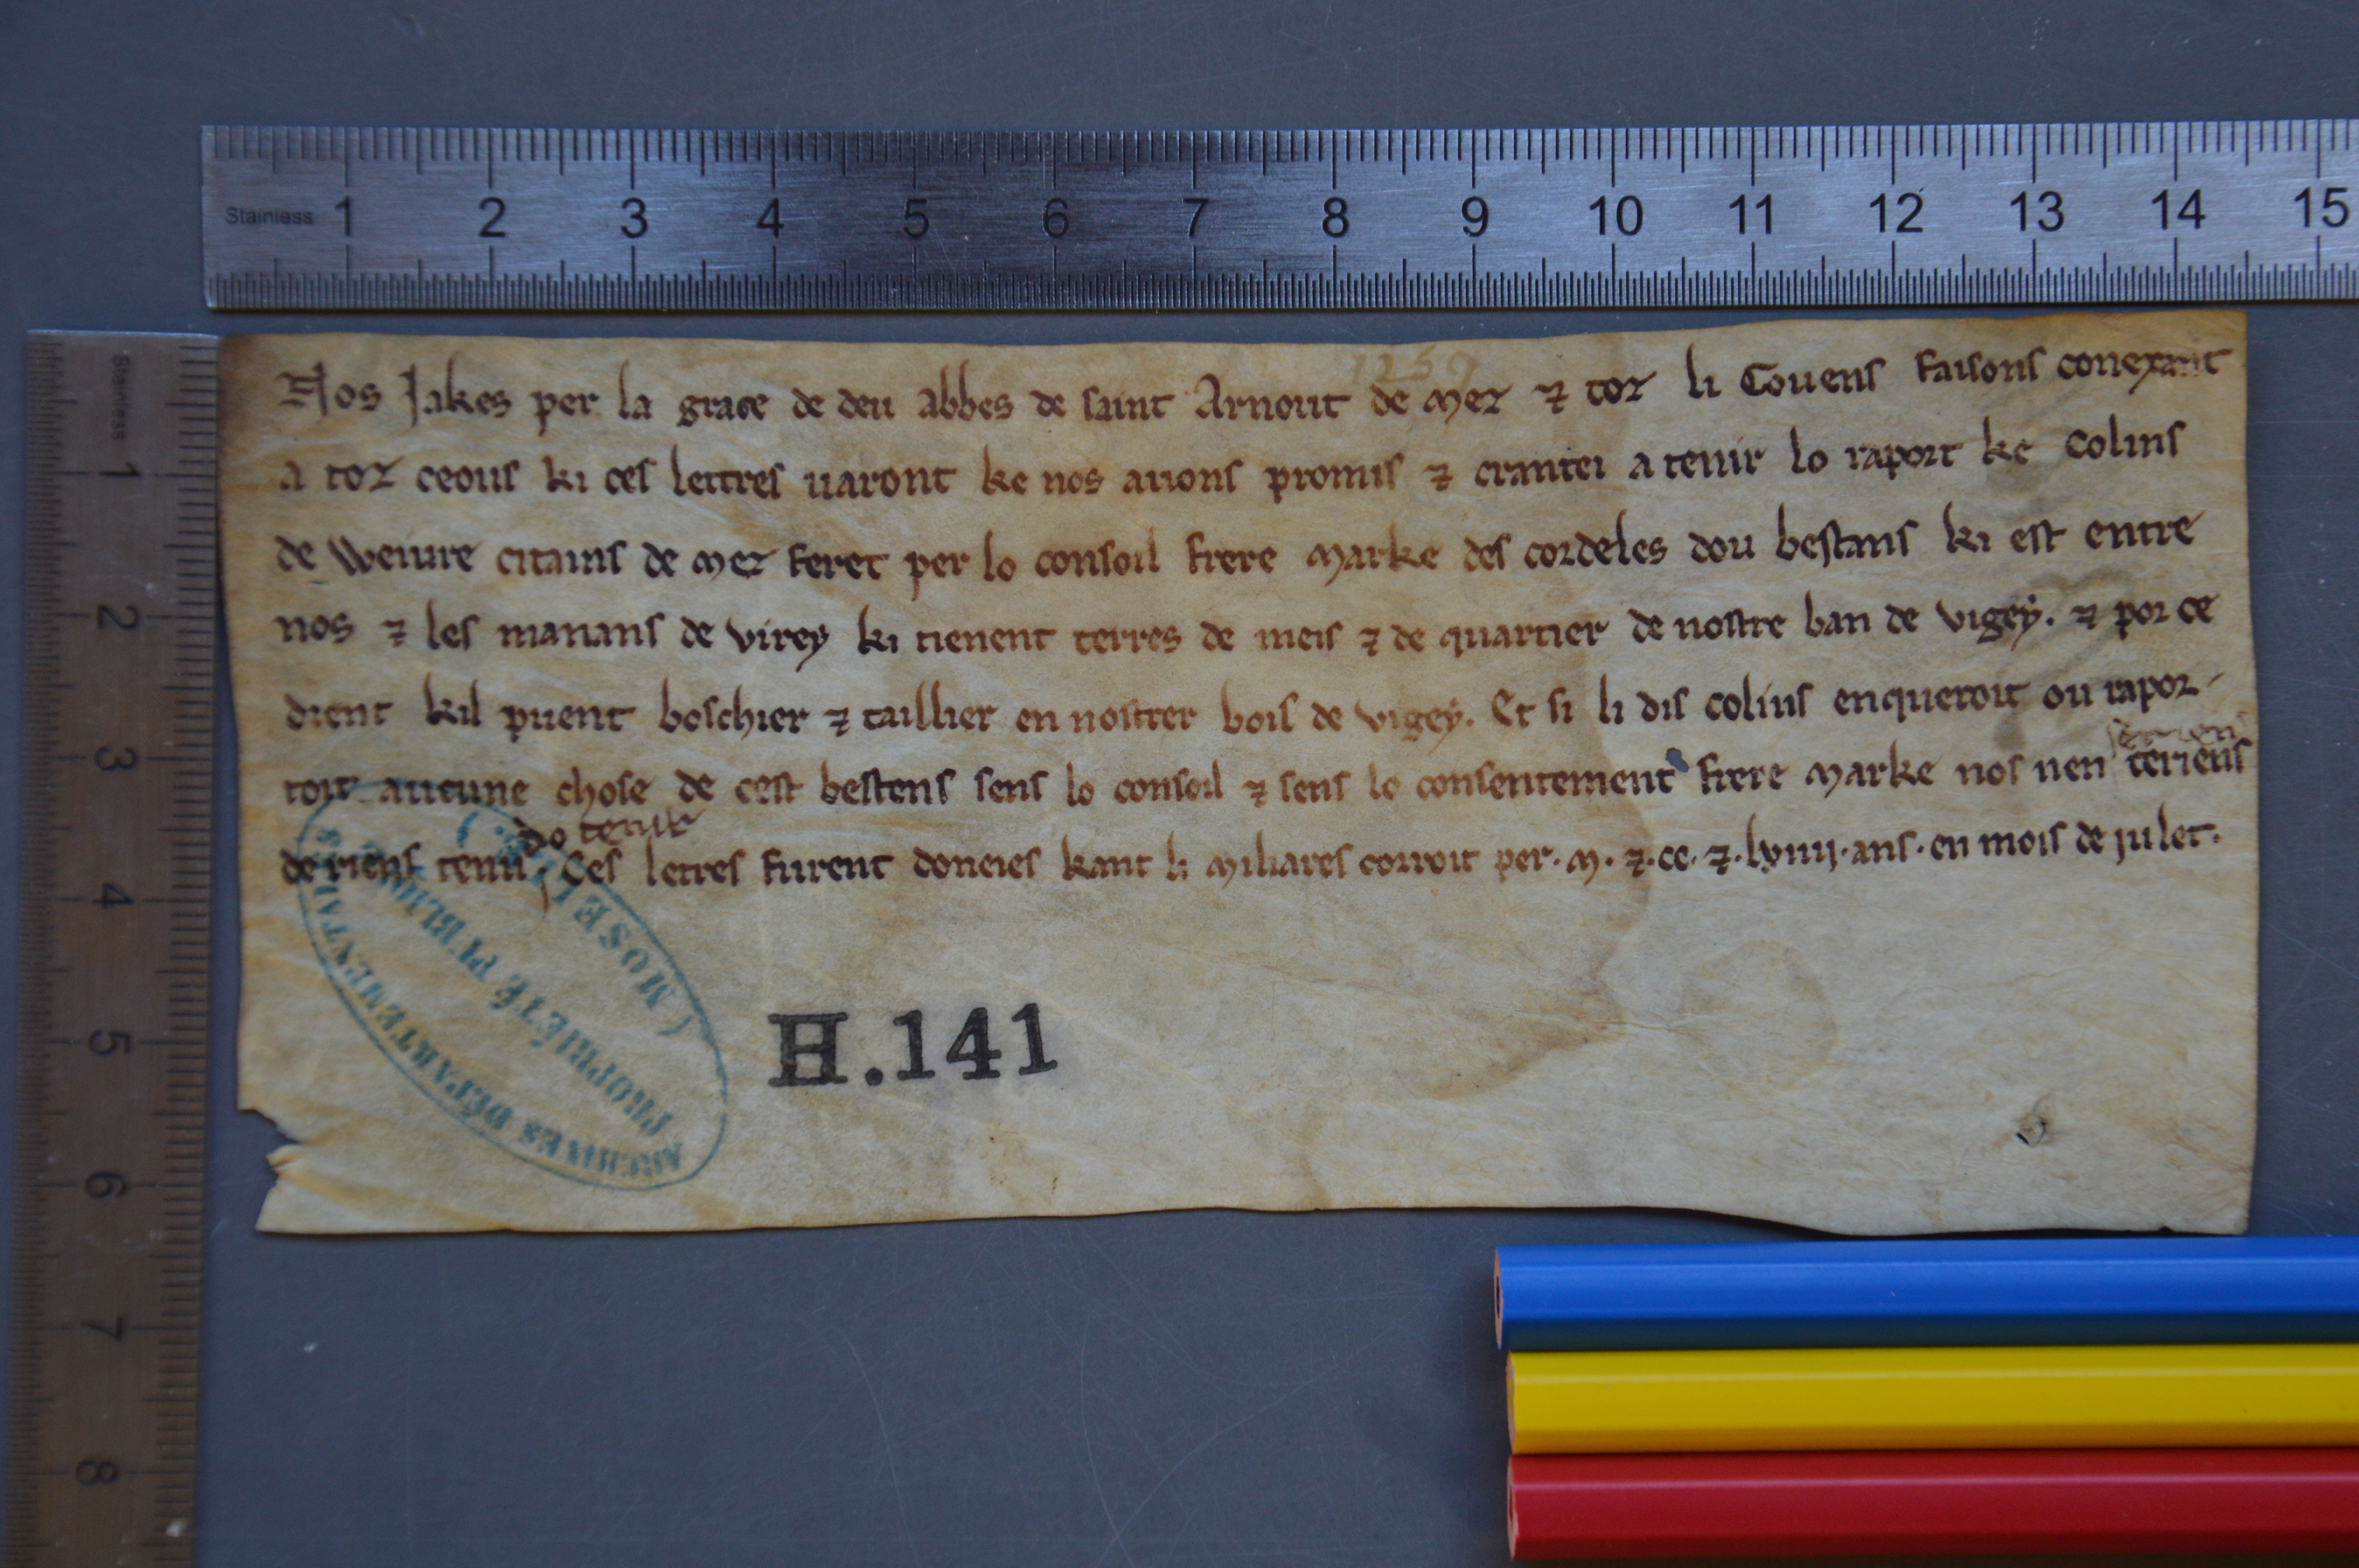 Stainless 1 2 3 4 5 6 7 8 9 10 11 12 13 14 15
Stainless 1 2 3 4 5 6 7 8
1259
Nos Jakes per la grace de deu abbes de saint Arnout de Mez ⁊ toz li Couens faisons conexant
a toz ceous ki ces lettres uaront ke nos auons promis ⁊ crantei a tenir lo raport ke Colins
de Weiure citains de Mez feret per lo consoil frere Marke des cordeles dou bestans ki est entre
nos ⁊ les manans de virey ki tienent terres de meis ⁊ de quartier de nostre ban de vigey. ⁊ por ce
dient kil puent boschier ⁊ taillier en nostter bois de vigey. Et si li dis colins enqueroit ou rapor-
toit aucune chose de cest bestens sens lo consoil ⁊ sens lo consentement frere Marke nos nen seriens
de riens tenu do tenir Ces letres furent doneies kant li Miliares corroit per. M. ⁊. cc. ⁊. lviiij. ans. en mois de julet.
ARCHIVES DÉPARTEMENTALES
PROPRIÉTÉ PUBLIQUE
(MOSELLE)
H.141